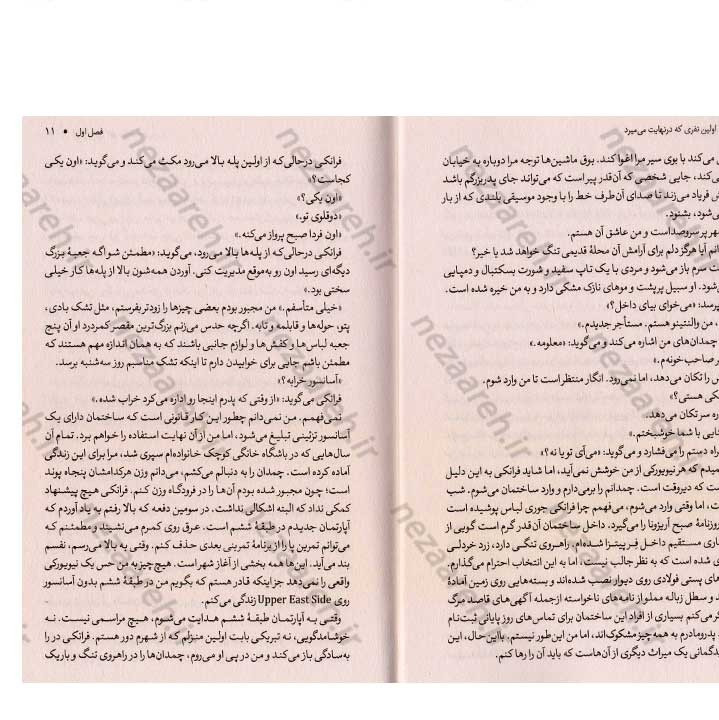 اولین نفری که درنهایت می‌میرد
می‌کند با بوی سیر مرا اغوا کند. بوق ماشین‌ها توجه مرا دوباره به خیابان
می‌کند، جایی شخصی که آن‌قدر پیر است که می‌تواند جای پدربزرگم باشد
فریاد می‌زند تا صدای آن‌طرف خط را با وجود موسیقی بلندی که از بار
می‌شود، بشنود.
شهر پر سروصداست و من عاشق آن هستم.
آیا هرگز دلم برای آرامش آن محلهٔ قدیمی تنگ خواهد شد یا خیر؟
سرم باز می‌شود و مردی با یک تاپ سفید و شورت بسکتبال و دمپایی
می‌شود. او سبیل پرپشت و موهای نازک مشکی دارد و به من خیره شده است.
می‌پرسد: «می‌خوای بیای داخل؟»
من والنتینو هستم. مستأجر جدیدم.»
چمدان‌های من اشاره می‌کند و می‌گوید: «معلومه.»
صاحب‌خونه‌م.»
را تکان می‌دهد، اما نمی‌رود. انگار منتظر است تا من وارد شوم.
هستی؟»
سر تکان می‌دهد.
با شما خوشبختم.»
دستم را می‌فشارد و می‌گوید: «می‌آی تو یا نه؟»
که هر نیویورکی از من خوشش نمی‌آید، اما شاید فرانکی به این دلیل
است که دیروقت است. چمدانم را برمی‌دارم و وارد ساختمان می‌شوم. شب
است، اما وقتی وارد می‌شوم، می‌فهمم چرا فرانکی جوری لباس پوشیده است
روزنامهٔ صبح آریزونا را می‌گیرد. داخل ساختمان آن‌قدر گرم است گویی از
مستقیم داخل فر پیتزا شده‌ام. راهروی تنگی دارد، زرد خردلی
شده است که به نظر جالب نیست، اما به این انتخاب احترام می‌گذارم.
پستی فولادی روی دیوار نصب شده‌اند و بسته‌هایی روی زمین آمادهٔ
و سطل زباله مملو از نامه‌های ناخواسته ازجمله آگهی‌های قاصد مرگ
می‌کنم بسیاری از افراد این ساختمان برای تماس‌های روز پایانی ثبت‌نام
پدر و مادرم به همه چیز مشکوک‌اند، اما من این‌طور نیستم. بااین‌حال، این
یک میراث دیگری از آن‌هاست که باید آن را رها کنم.
فصل اول • ۱۱
فرانکی درحالی‌که از اولین پله بالا می‌رود مکث می‌کند و می‌گوید: «اون یکی
کجاست؟»
«اون یکی؟»
«دوقلوی تو.»
«اون فردا صبح پرواز می‌کنه.»
فرانکی درحالی‌که از پله‌ها بالا می‌رود، می‌گوید: «مطمئن شو اگه جعبهٔ بزرگ
دیگه‌ای رسید اون رو به‌موقع مدیریت کنی. آوردن همه‌شون بالا از پله‌ها کار خیلی
سختی بود.»
«خیلی متأسفم.» من مجبور بودم بعضی چیزها را زودتر بفرستم، مثل تشک بادی،
پتو، حوله‌ها و قابلمه و تابه. اگرچه حدس می‌زنم بزرگ‌ترین مقصر کمردرد او آن پنج
جعبه لباس‌ها و کفش‌ها و لوازم جانبی باشند که به همان اندازه مهم هستند که
مطمئن باشم جایی برای خوابیدن دارم تا اینکه تشک مناسبم روز سه‌شنبه برسد.
«آسانسور خرابه؟»
فرانکی می‌گوید: «از وقتی که پدرم اینجا رو اداره می‌کرد خراب شده.»
نمی‌فهمم. من نمی‌دانم چطور این کار قانونی است که ساختمان دارای یک
آسانسور تزئینی تبلیغ می‌شود، اما من از آن نهایت استفاده را خواهم برد. تمام آن
سال‌هایی که در باشگاه خانگی کوچک خانواده‌ام سپری شد، مرا برای این زندگی
آماده کرده است. چمدان را به دنبالم می‌کشم، می‌دانم وزن هرکدامشان پنجاه پوند
است؛ چون مجبور شده بودم آن‌ها را در فرودگاه وزن کنم. فرانکی هیچ پیشنهاد
کمکی نداد که البته اشکالی نداشت. در سومین دفعه که بالا رفتم به یاد آوردم که
آپارتمان جدیدم در طبقهٔ ششم است. عرق روی کمرم می‌نشیند و مطمئنم که
می‌توانم تمرین پا را از برنامهٔ تمرینی بعدی حذف کنم. وقتی به بالا می‌رسم، نفسم
بند می‌آید. این‌ها همه بخشی از آغاز شهر است. هیچ چیز به من حس یک نیویورکی
واقعی را نمی‌دهد جز اینکه قادر هستم که بگویم من در طبقهٔ ششم بدون آسانسور
روی Upper East Side زندگی می‌کنم.
وقتی به آپارتمان طبقهٔ ششم هدایت می‌شوم، هیچ مراسمی نیست. نه
خوشامدگویی، نه تبریکی بابت اولین منزلم که از شهرم دور هستم. فرانکی در را
به‌سادگی باز می‌کند و من در پی او می‌روم، چمدان‌ها را در راهروی تنگ و باریک
nezaareh.ir